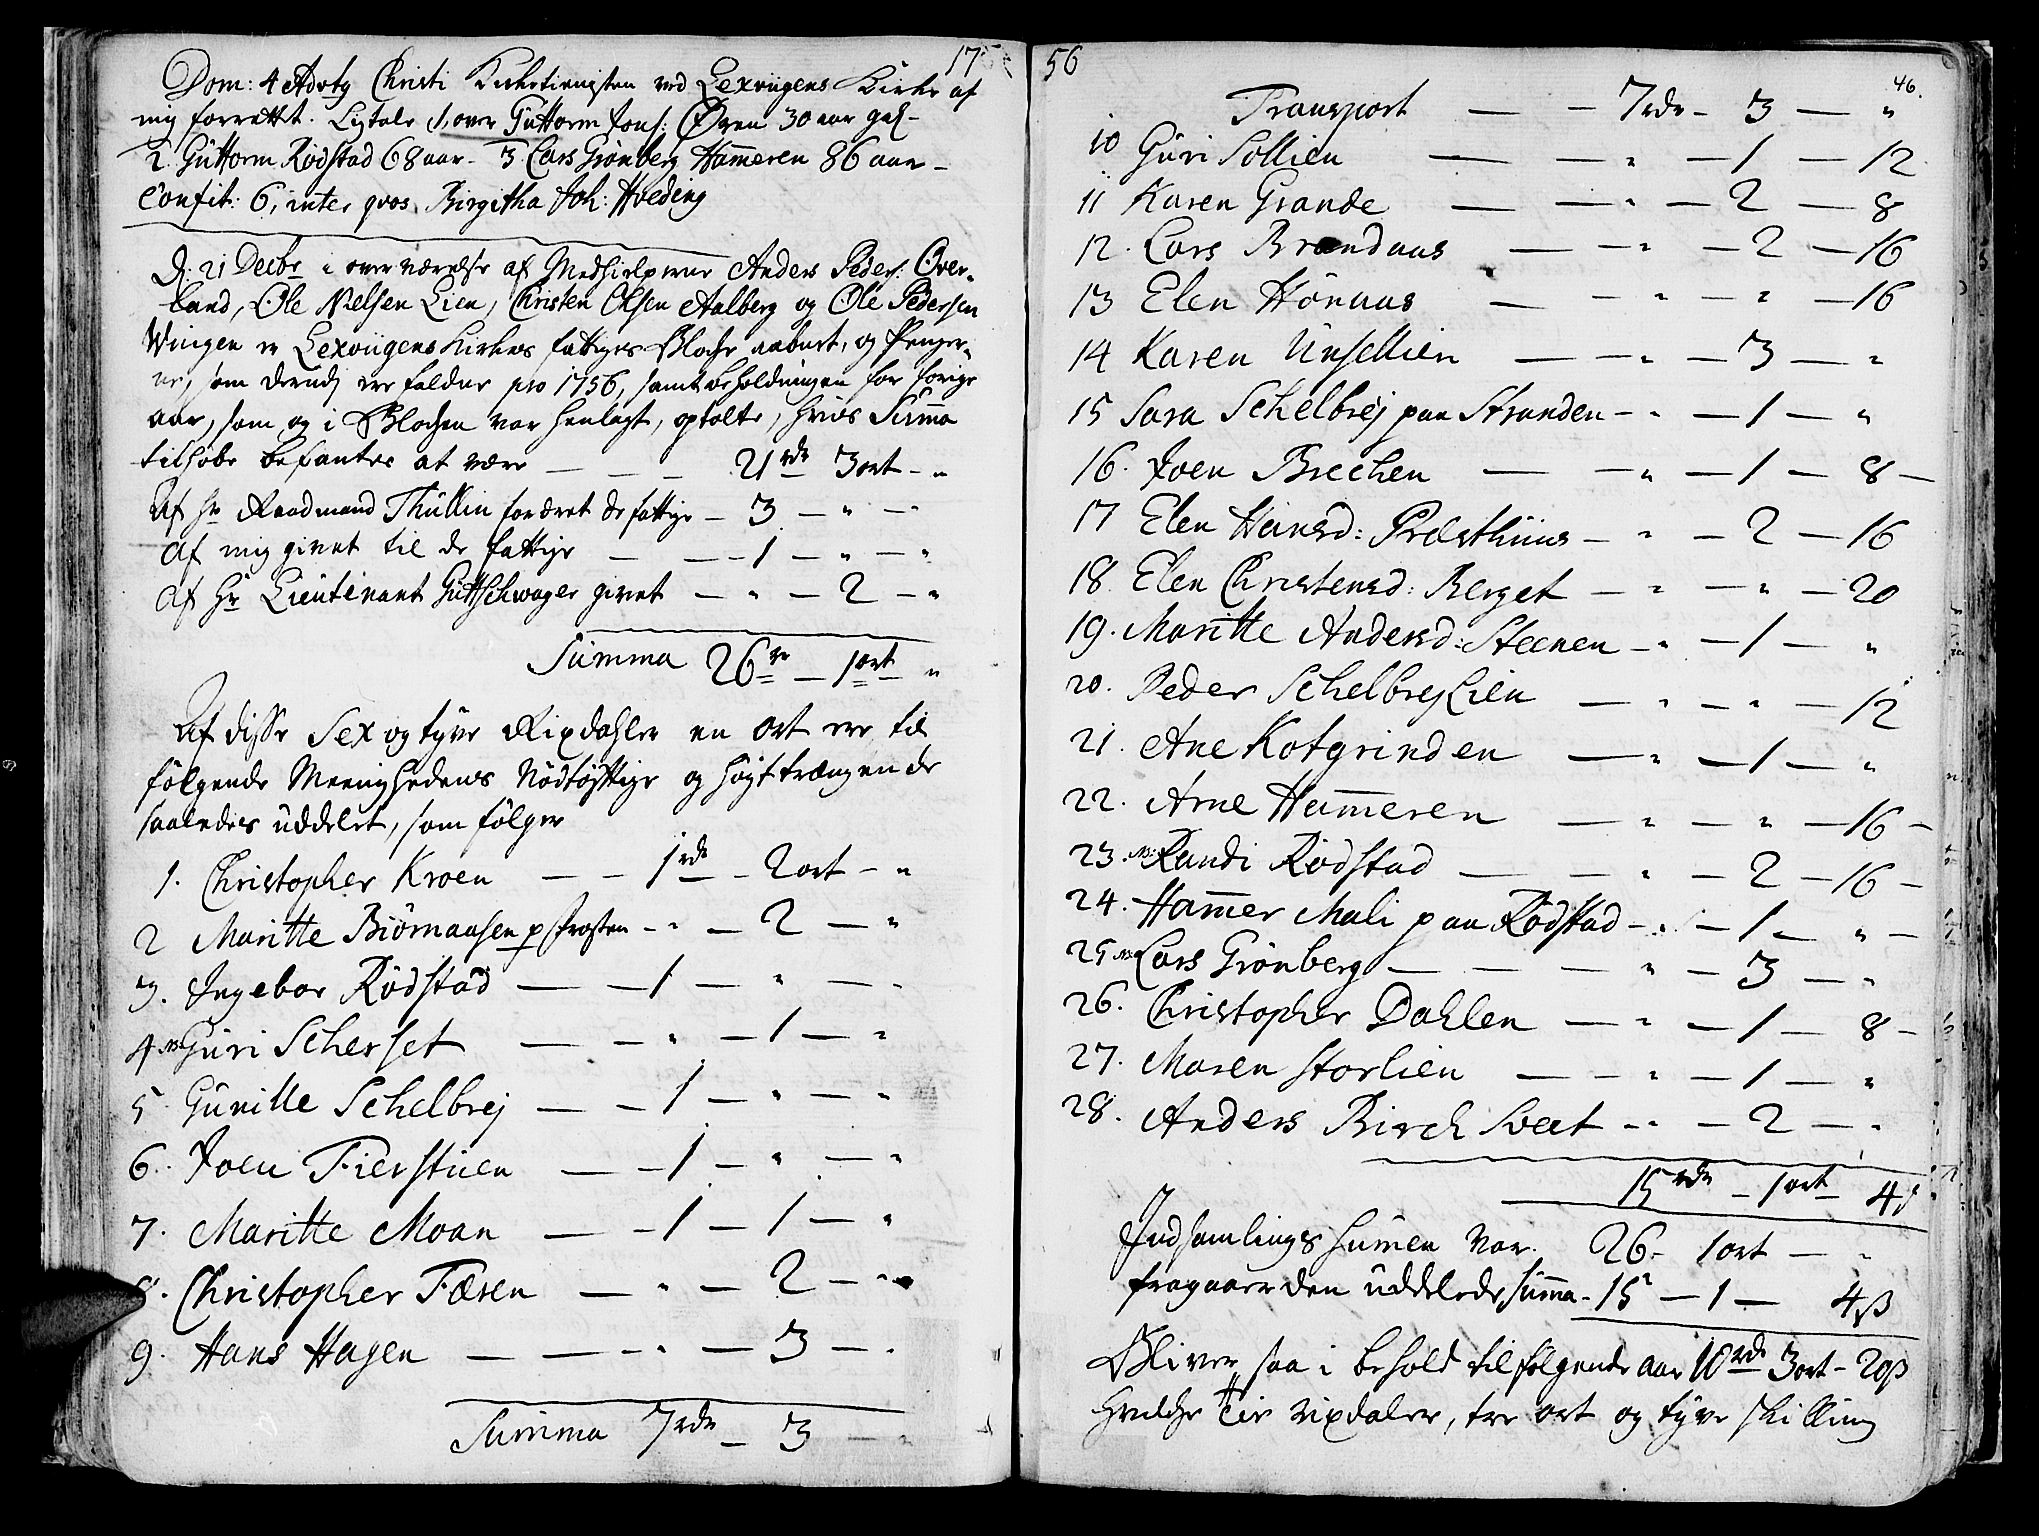 17
Dom: 4 Advty Christi Kirketienisten ved Lexvigens Kirke af
mig forrettet. Ligtale 1, over Guttorm Jons: Øren 30 aar gal-
2. Guttorm Rødstad 68 aar - 3 Lars Grønberg Hammeren 86 aar -
Confit: 6, inter qvos Birgitha Joh: Hveding
D. 21 Decbr i overværelse af Medhielperne Anders Peders: Over-
land, Ole Nielsen Lien, Christen Olsen Aalberg og Ole Pedersen
Wiigen er Lexvigens Kirkes fattiges Blok aabnet, og Penger-
ne, som derudj ere faldne pro 1756, samt beholdningen for forige
aar, som og i Blochen var henlagt, optalte, hvis Summa
tilhobe befantes at være — — — 21 rdr 3 ort - "
Af Hr Raadmand Thullin foræret de fattige — 3 — " — "
Af mig givet til de fattige — — — 1 — " — "
Af Hr Lieutenant Guttschwager givet — " — 2 — "
Summa 26 rdr — 1 ort — "
Af disse Sex og tyve Rixdahler en ort ere til
følgende Meenighedens Nødtøfftige og høyttrængende
saaledes uddelet, som følger
1. Christopher Kroen — — 1 rdr — 2 ort - "
2 Maritte Biørnaasen p Frosten — " — 2 — "
3. Ingebor Rødstad — — 1 — " — "
4 NB Guri Scherset — — " — 1 — "
5 Gunille Schelbrej — — 1 — " — "
6. Joen Fierstuen — — 1 — " — "
7. Maritte Moan — — 1 — 1 — "
8. Christopher Fæsen — " — 2 — "
9. Hans Hagen — — — " — 3 — "
Summa 7 rdr — 3 — "
56
46.
Transport — — 7 rdr — 3 — "
10 Guri Sollien — — " — 1 — 12
11 Karen Grande — — " — 2 — 8
12. Lars Brandaas — — " — 2 — 16
13 Elen Hønaas — — " — " — 16
14 Karen Unsellien — — " — 3 — "
15 Sara Schelbrej paa Stranden — " — 1 — "
16. Joen Brechen — — " — 1 — 8 —
17 Elen Hansd: Præsthuus — " — 2 — 16
18. Elen Christensd: Berget — " — " — 20
19. Maritte Andersd: Steenen — " — 1 — "
20. Peder Schelbrej Lien — " — " — 12
21. Ane Kotgrinden — " — 1 — "
22. Arne Hammeren — " — " — 16 —
23. NB Randi Rødstad — — " — 2 — 16 —
24. Hammer Mali paa Rødstad — " — 1 — " —
25 NB Lars Grønberg — — — " — 3 — "
26. Christopher Dahlen — " — 1 — 8 —
27. Maren Storlien — — " — 1 — "
28. Anders Birch Sveet — " — 2 — "
15 rdr — 1 ort — 4 s
Indsamlings Summen var. 26 — 1 ort — "
fragaaer den uddelede Summa — 15 — 1 — 4 ß
Bliver saa i behold til følgende aar 10 rdr 3 ort — 20 ß
hvilke Tie rixdaler, tre ort og tyve skilling